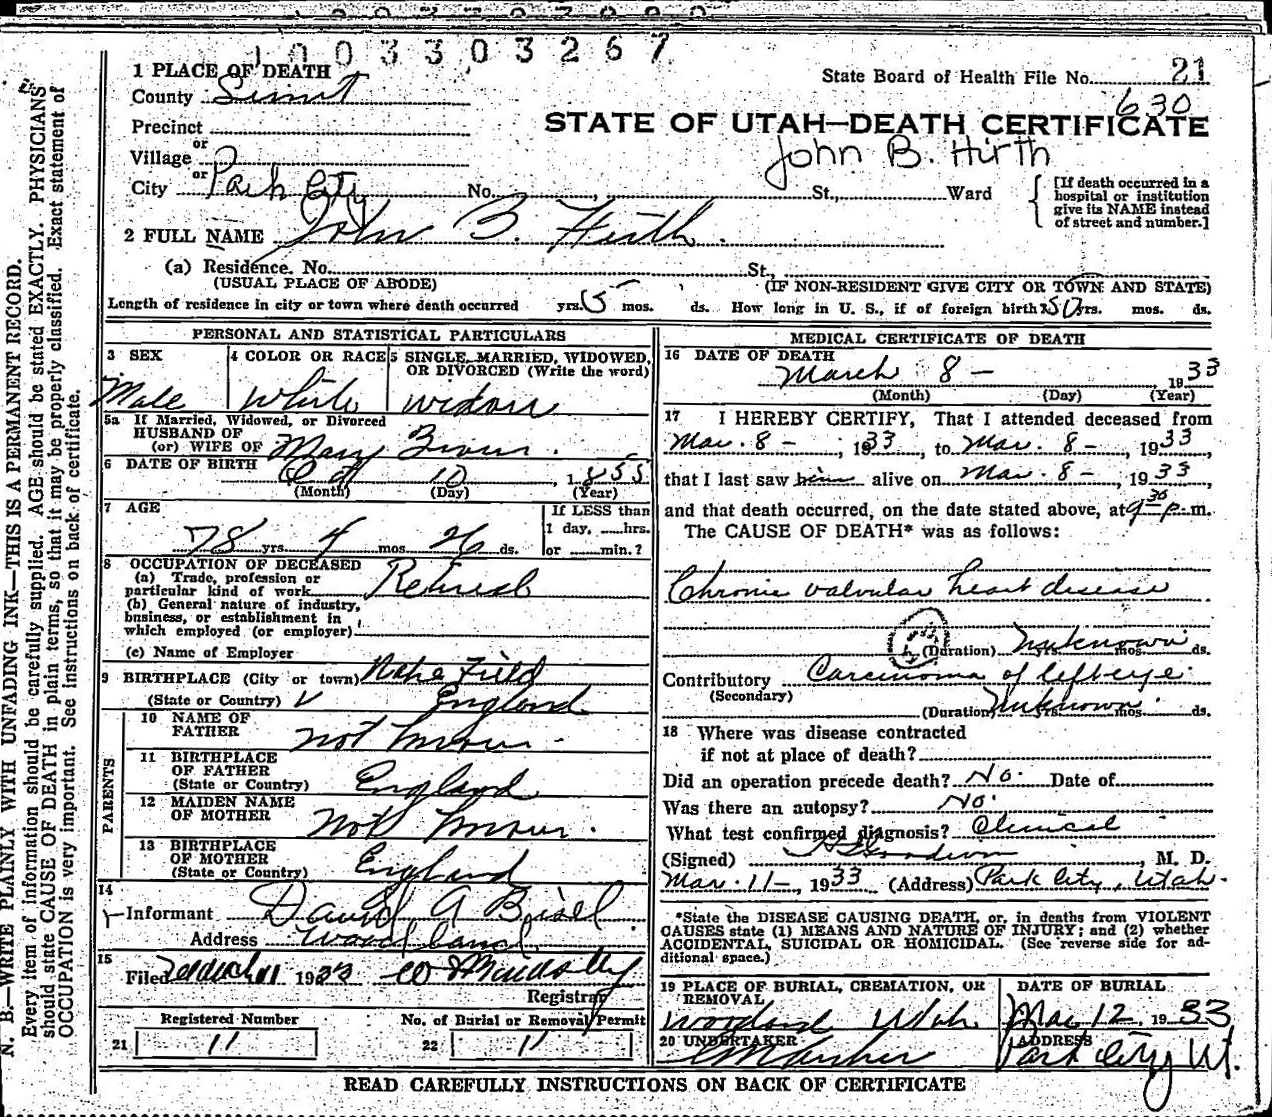 1003303267
1 PLACE OF DEATH
State Board of Health File No. 21
County Summit
630
Precinct
STATE OF UTAH—DEATH CERTIFICATE
or
Village
John B. Hirth
or
City Park City No. St., Ward
[If death occurred in a
hospital or institution
give its NAME instead
of street and number.]
2 FULL NAME John B. Hirth.
(a) Residence. No. St.,
(USUAL PLACE OF ABODE) (IF NON-RESIDENT GIVE CITY OR TOWN AND STATE)
Length of residence in city or town where death occurred yrs. 5 mos. ds. How long in U. S., if of foreign birth? 50 yrs. mos. ds.
PERSONAL AND STATISTICAL PARTICULARS
3 SEX
Male
4 COLOR OR RACE
White
5 SINGLE, MARRIED, WIDOWED,
OR DIVORCED (Write the word)
widow
5a If Married, Widowed, or Divorced
HUSBAND OF
(or) WIFE OF Mary
6 DATE OF BIRTH Oct 10, 1855
(Month) (Day) (Year)
7 AGE
78 yrs. 4 mos. 26 ds.
If LESS than
1 day, hrs.
or min.?
8 OCCUPATION OF DECEASED
(a) Trade, profession or
particular kind of work Retired
(b) General nature of industry,
business, or establishment in
which employed (or employer)
(c) Name of Employer
9 BIRTHPLACE (City or town) Field
(State or Country) England
PARENTS
10 NAME OF
FATHER not known.
11 BIRTHPLACE
OF FATHER
(State or Country) England
12 MAIDEN NAME
OF MOTHER not known.
13 BIRTHPLACE
OF MOTHER
(State or Country) England
14
Informant David A
Address Woodland
15
Filed March 11 1933
Registrar
Registered Number
21 11
No. of Burial or Removal Permit
22 11
MEDICAL CERTIFICATE OF DEATH
16 DATE OF DEATH
March 8 - 1933
(Month) (Day) (Year)
17 I HEREBY CERTIFY, That I attended deceased from
Mar. 8 -, 1933, to Mar. 8 -, 1933,
that I last saw him alive on Mar. 8 -, 1933,
and that death occurred, on the date stated above, at 9 30 p.m.
The CAUSE OF DEATH* was as follows:
Chronic valvular heart disease
(Duration) Unknown yrs. mos. ds.
Contributory Carcinoma of left eye
(Secondary)
(Duration) Unknown yrs. mos. ds.
18 Where was disease contracted
if not at place of death?
Did an operation precede death? No. Date of
Was there an autopsy? No.
What test confirmed diagnosis? Clinical
(Signed) , M. D.
Mar. 11 -, 1933 (Address) Park City, Utah.
*State the DISEASE CAUSING DEATH, or, in deaths from VIOLENT
CAUSES state (1) MEANS AND NATURE OF INJURY; and (2) whether
ACCIDENTAL, SUICIDAL OR HOMICIDAL. (See reverse side for ad-
ditional space.)
19 PLACE OF BURIAL, CREMATION, OR
REMOVAL
Woodland Utah.
DATE OF BURIAL
Mar 12, 1933
20 UNDERTAKER
ADDRESS
Park City Ut.
READ CAREFULLY INSTRUCTIONS ON BACK OF CERTIFICATE
N. B.—WRITE PLAINLY WITH UNFADING INK—THIS IS A PERMANENT RECORD.
Every item of information should be carefully supplied. AGE should be stated EXACTLY. PHYSICIANS
should state CAUSE OF DEATH in plain terms, so that it may be properly classified. Exact statement of
OCCUPATION is very important. See instructions on back of certificate.